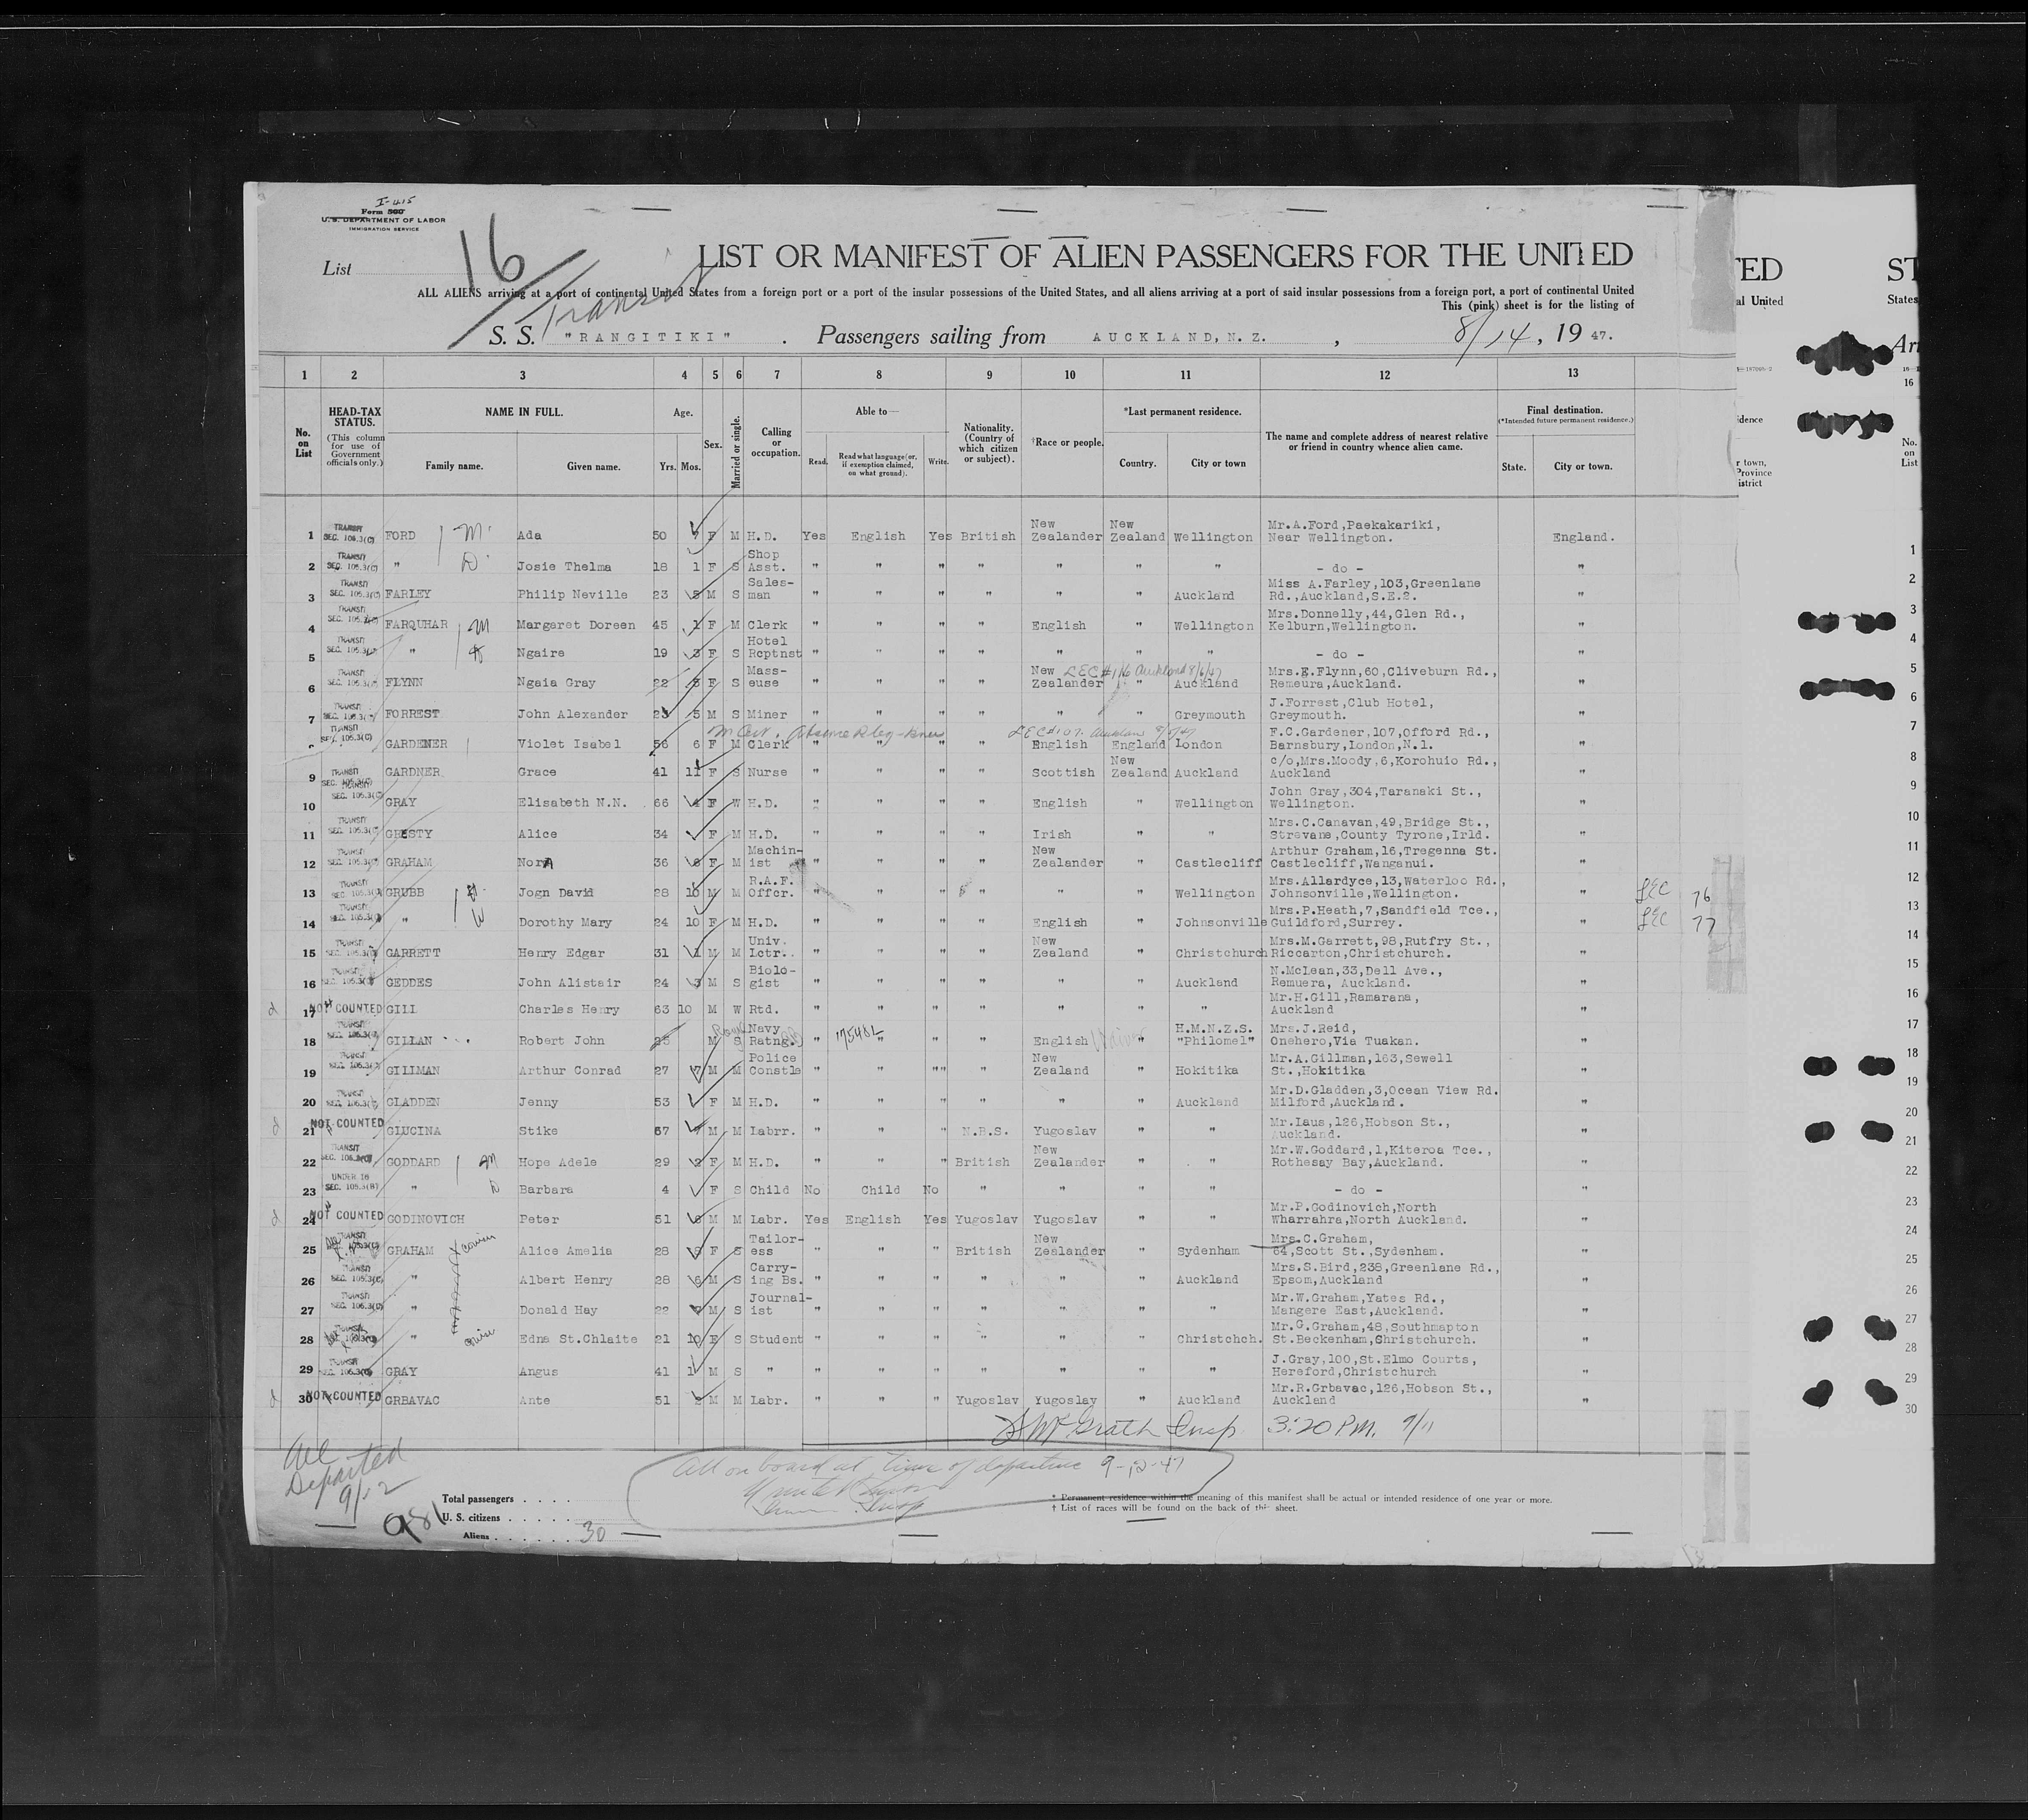 I-415
Form 500
U. S. DEPARTMENT OF LABOR
IMMIGRATION SERVICE
List 16
Transit
LIST OR MANIFEST OF ALIEN PASSENGERS FOR THE UNITED
ALL ALIENS arriving at a port of continental United States from a foreign port or a port of the insular possessions of the United States, and all aliens arriving at a port of said insular possessions from a foreign port, a port of continental United
This (pink) sheet is for the listing of
S. S. "RANGITIKI" . Passengers sailing from AUCKLAND, N. Z. , 8/14, 19 47.
1 2 3 4 5 6 7 8 9 10 11 12 13
No. on List
HEAD-TAX STATUS. (This column for use of Government officials only.)
NAME IN FULL. Family name. Given name.
Age. Yrs. Mos.
Sex.
Married or single.
Calling or occupation.
Able to— Read. Read what language (or, if exemption claimed, on what ground). Write.
Nationality. (Country of which citizen or subject).
†Race or people.
*Last permanent residence. Country. City or town
The name and complete address of nearest relative or friend in country whence alien came.
Final destination. (*Intended future permanent residence.) State. City or town.
1 TRANSIT SEC. 105.3(C) FORD M Ada 50 F M H.D. Yes English Yes British New Zealander New Zealand Wellington Mr.A.Ford,Paekakariki, Near Wellington. England.
2 TRANSIT SEC. 105.3(C) " D Josie Thelma 18 1 F S Shop Asst. " " " " " " " - do - "
3 TRANSIT SEC. 105.3(C) FARLEY Philip Neville 23 M S Sales-man " " " " " " Auckland Miss A.Farley,103,Greenlane Rd.,Auckland,S.E.2. "
4 TRANSIT SEC. 105.3(C) FARQUHAR M Margaret Doreen 45 1 F M Clerk " " " " English " Wellington Mrs.Donnelly,44,Glen Rd., Kelburn,Wellington. "
5 TRANSIT SEC. 105.3(C) " Ngaire 19 3 F S Hotel Rcptnst " " " " " " " - do - "
6 TRANSIT SEC. 105.3(C) FLYNN Ngaia Gray 22 F S Mass-euse " " " " New Zealander " Auckland Mrs.E.Flynn,60,Cliveburn Rd., Remeura,Auckland. "
LEC #116 Auckland 8/6/47
7 TRANSIT SEC. 105.3(C) FORREST John Alexander 23 5 M S Miner " " " " " " Greymouth J.Forrest,Club Hotel, Greymouth. "
TRANSIT SEC. 105.3(C) GARDENER Violet Isabel 56 6 F M Clerk " " " " English England London F.C.Gardener,107,Offord Rd., Barnsbury,London,N.1. "
9 TRANSIT SEC. 105.3(C) GARDNER Grace 41 11 F S Nurse " " " " Scottish New Zealand Auckland c/o,Mrs.Moody,6,Korohuio Rd., Auckland "
10 TRANSIT SEC. 105.3(C) GRAY Elisabeth N.N. 66 4 F W H.D. " " " " English " Wellington John Gray,304,Taranaki St., Wellington. "
11 TRANSIT SEC. 105.3(C) GRESTY Alice 34 F M H.D. " " " " Irish " " Mrs.C.Canavan,49,Bridge St., Strevane,County Tyrone,Irld. "
12 TRANSIT SEC. 105.3(C) GRAHAM NorA 36 F M Machin-ist " " " " New Zealander " Castlecliff Arthur Graham,16,Tregenna St. Castlecliff,Wanganui. "
13 TRANSIT SEC. 105.3(C) GRUBB H Jogn David 28 10 M M R.A.F. Offcr. " " " " " " Wellington Mrs.Allardyce,13,Waterloo Rd., Johnsonville,Wellington. " LEC 76
14 TRANSIT SEC. 105.3(C) " W Dorothy Mary 24 10 F M H.D. " " " " English " Johnsonville Mrs.P.Heath,7,Sandfield Tce., Guildford,Surrey. " LEC 77
15 TRANSIT SEC. 105.3(C) GARRETT Henry Edgar 31 1 M M Univ. Lctr.. " " " " New Zealand " Christchurch Mrs.M.Garrett,98,Rutfry St., Riccarton,Christchurch. "
16 TRANSIT SEC. 105.3(C) GEDDES John Alistair 24 3 M S Biolo-gist " " " " " " Auckland N.McLean,33,Dell Ave., Remuera, Auckland. "
17 NOT COUNTED GILL Charles Henry 63 10 M W Rtd. " " " " " " " Mr.H.Gill,Ramarana, Auckland "
18 TRANSIT SEC. 105.3(C) GILLAN Robert John 25 M S Navy Ratng. " " " " English " H.M.N.Z.S. "Philomel" Mrs.J.Reid, Onehero,Via Tuakan. "
19 TRANSIT SEC. 105.3(C) GILLMAN Arthur Conrad 27 7 M M Police Constle " " "" " New Zealand " Hokitika Mr.A.Gillman,163,Sewell St.,Hokitika "
20 TRANSIT SEC. 105.3(C) GLADDEN Jenny 53 F M H.D. " " " " " " Auckland Mr.D.Gladden,3,Ocean View Rd. Milford,Auckland. "
21 NOT COUNTED GLUCINA Stike 57 M M Labrr. " " " N.B.S. Yugoslav " " Mr.Iaus,126,Hobson St., Auckland. "
22 TRANSIT SEC. 105.3(C) GODDARD M Hope Adele 29 2 F M H.D. " " " British New Zealander " " Mr.W.Goddard,1,Kiteroa Tce., Rothesay Bay,Auckland. "
23 UNDER 16 SEC. 105.3(B) " D Barbara 4 F S Child No Child No " " " " - do - "
24 NOT COUNTED GODINOVICH Peter 51 M M Labr. Yes English Yes Yugoslav Yugoslav " " Mr.P.Godinovich,North Wharrahra,North Auckland. "
25 TRANSIT GRAHAM Alice Amelia 28 F S Tailor-ess " " " British New Zealander " Sydenham Mrs.C.Graham, 64,Scott St.,Sydenham. "
26 TRANSIT SEC. 105.3(C) " Albert Henry 28 6 M S Carry-ing Bs. " " " " " " Auckland Mrs.S.Bird,238,Greenlane Rd., Epsom,Auckland "
27 TRANSIT SEC. 105.3(C) " Donald Hay 22 M S Journal-ist " " " " " " " Mr.W.Graham,Yates Rd., Mangere East,Auckland. "
28 TRANSIT " Edna St.Chlaite 21 10 F S Student " " " " " " Christchch. Mr.G.Graham,48,Southmapton St.Beckenham,Christchurch. "
29 TRANSIT SEC. 105.3(C) GRAY Angus 41 1 M S " " " " " " " " J.Gray,100,St.Elmo Courts, Hereford,Christchurch "
30 NOT COUNTED GRBAVAC Ante 51 2 M M Labr. " " " Yugoslav Yugoslav " Auckland Mr.R.Grbavac,126,Hobson St., Auckland "
McGrath Insp. 3:20 P.M. 9/11
All Departed 9/12
All on board at time of departure 9-12-47
981
Total passengers . . . .
U. S. citizens . . . . . .
Aliens . . . . . . 30
* Permanent residence within the meaning of this manifest shall be actual or intended residence of one year or more.
† List of races will be found on the back of this sheet.
TED
al United
ST
States
Arr
16
idence
r town,
Province
istrict
No.
on
List
1
2
3
4
5
6
7
8
9
10
11
12
13
14
15
16
17
18
19
20
21
22
23
24
25
26
27
28
29
30